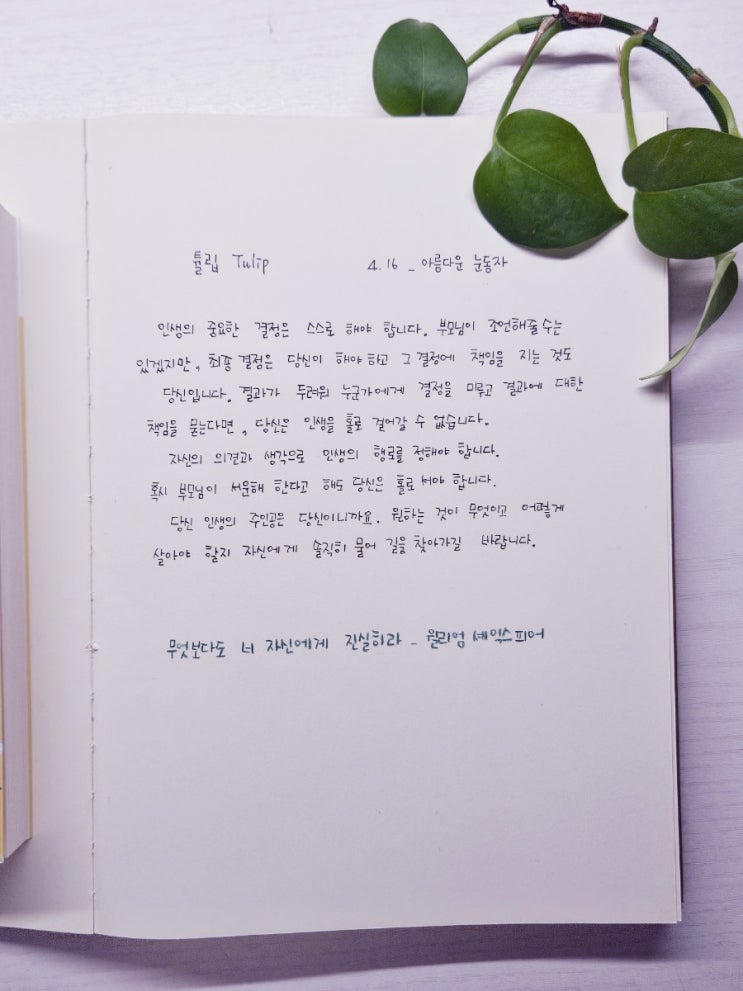 튤립 Tulip 4.16 _ 아름다운 눈동자
인생의 중요한 결정은 스스로 해야 합니다. 부모님이 조언해줄 수는
있겠지만, 최종 결정은 당신이 해야 하고 그 결정에 책임을 지는 것도
당신입니다. 결과가 두려워 누군가에게 결정을 미루고 결과에 대한
책임을 묻는다면, 당신은 인생을 홀로 걸어갈 수 없습니다.
자신의 의견과 생각으로 인생의 행로를 정해야 합니다.
혹시 부모님이 서운해 한다고 해도 당신은 홀로 서야 합니다.
당신 인생의 주인공은 당신이니까요. 원하는 것이 무엇이고 어떻게
살아야 할지 자신에게 솔직히 물어 길을 찾아가길 바랍니다.
무엇보다도 너 자신에게 진실하라 _ 윌리엄 셰익스피어